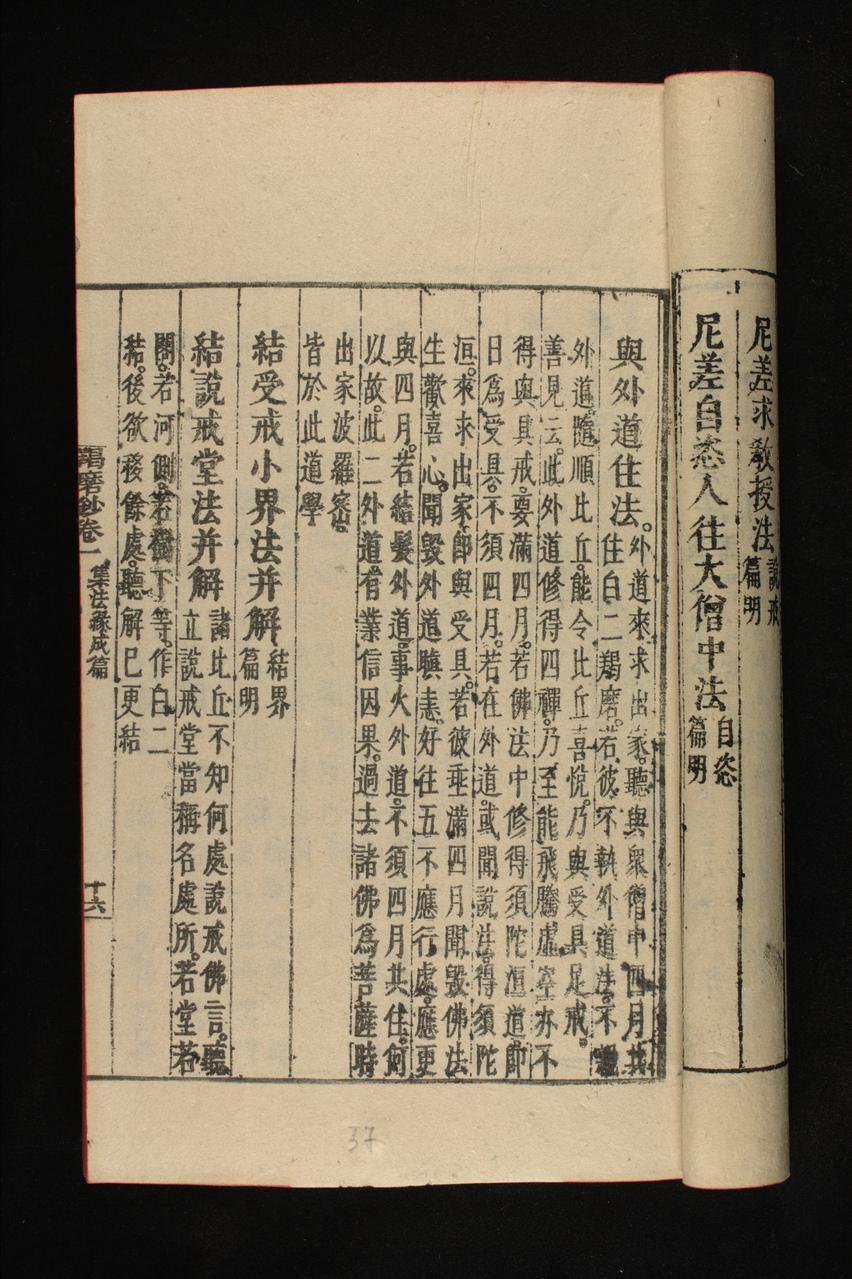 尼差求教授法說戒
篇明
尼差自恣人往大僧中法自恣
篇明
與外道住法。外道來求出家。聽與眾僧中四月共
住白二羯磨。若彼不執外道法。不
外道。隨順比丘。能令比丘喜悅。乃與受具足戒。
善見云。此外道修得四禪。乃至能飛騰虛空。亦不
得與具戒。要滿四月。若佛法中修得須陀洹道。即
日為受具。不須四月。若在外道。或聞說法。得須陀
洹。來求出家。即與受具。若彼垂滿四月。聞毀佛法
生歡喜心。聞毀外道瞋恚。好往五不應行處。應更
與四月。若結髮外道。事火外道。不須四月共住。何
以故。此二外道。有業信因果。過去諸佛為菩薩時
出家波羅密。
皆於此道學
結受戒小界法并解結界
篇明
結說戒堂法并解諸比丘不知何處說戒佛言。聽
立說戒堂當稱名處所。若堂若
閣。若河側。若樹下等。作白二
結。後欲移餘處。聽解已更結
羯磨鈔卷一 集法緣成篇 十六
37